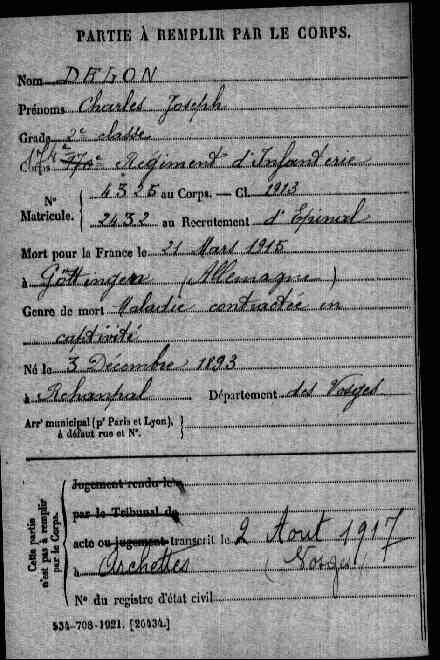 PARTIE À REMPLIR PAR LE CORPS.
Nom DELON
Prénoms Charles Joseph
Grade 2e classe
Corps 174e 170e Régiment d'Infanterie
N° Matricule. { 4325 au Corps. — Cl. 1913
2432 au Recrutement d'Epinal
Mort pour la France le 21 Mars 1915
à Göttingen (Allemagne)
Genre de mort Maladie contractée en
captivité
Né le 3 Décembre 1893
à Rehaupal Département des Vosges
Arrt municipal (pr Paris et Lyon), à défaut rue et N°. }
Cette partie n'est pas à remplir par le Corps.
Jugement rendu le
par le Tribunal de
acte ou jugement transcrit le 2 Aout 1917
à Archettes (Vosges)
N° du registre d'état civil
534-708-1921. [26434.]